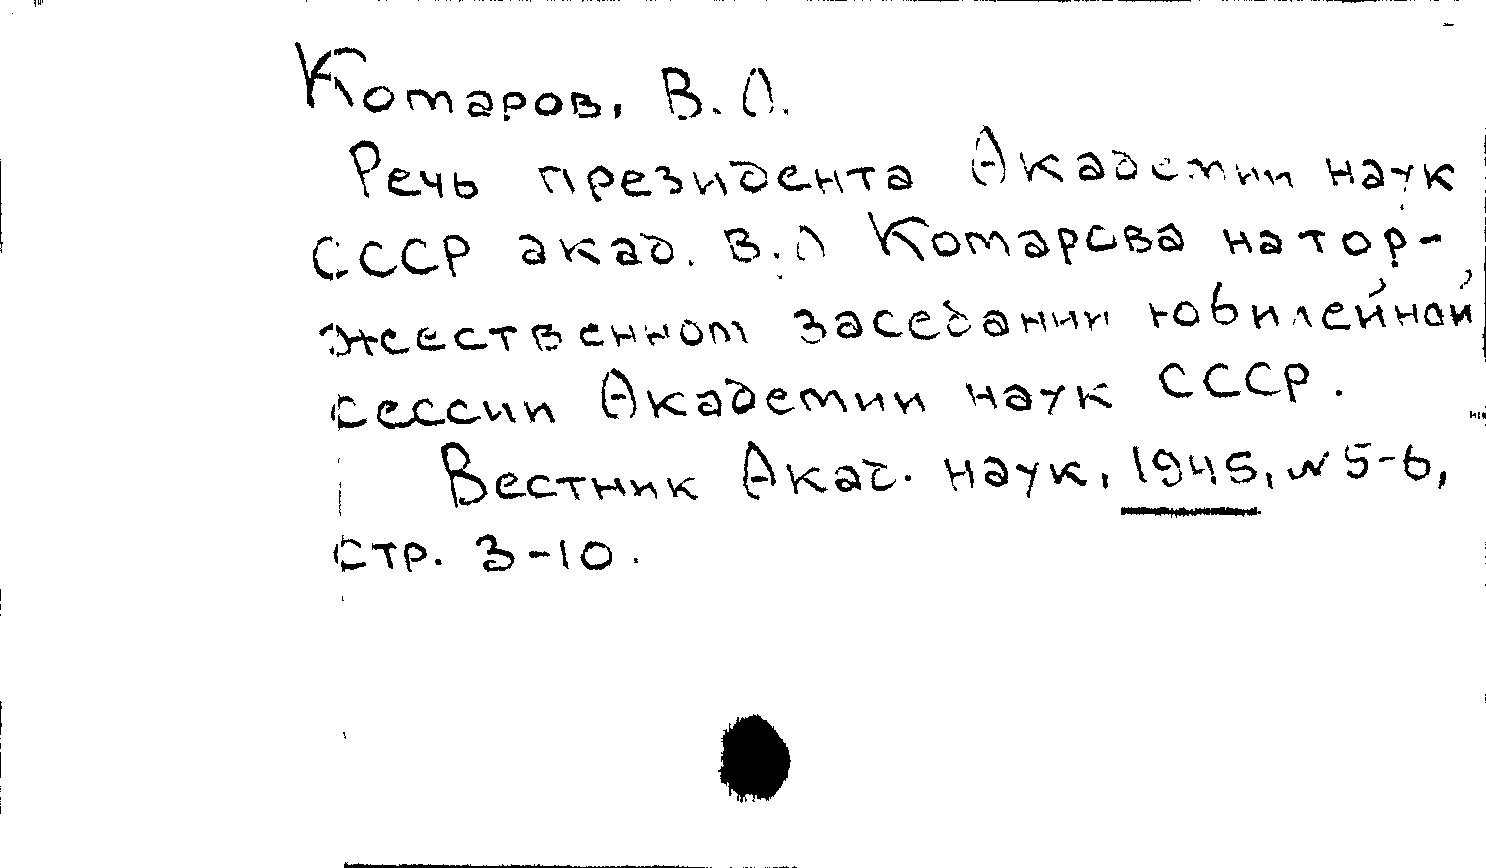 Комаров, В.Л.
Речь президента Академии наук
СССР акад. В.Л Комарова на тор-
жественном заседании юбилейной
сессии Академии наук СССР.
Вестник Акад. наук, 1945, № 5-6,
стр. 3-10.